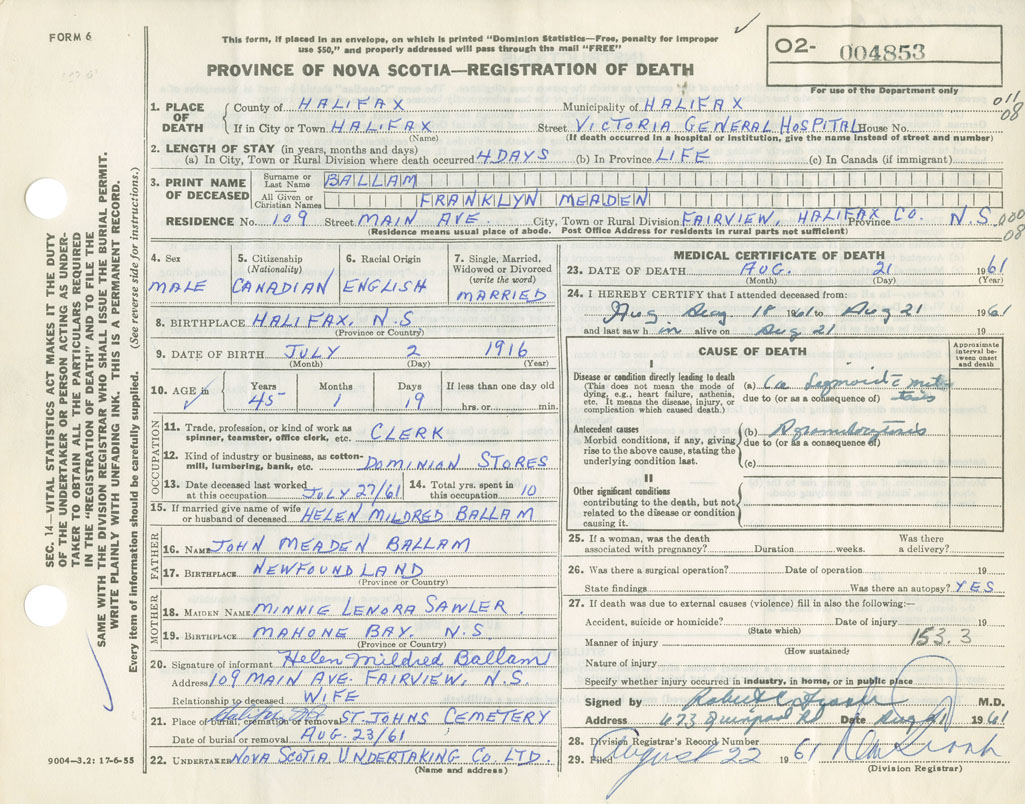 FORM 6
This form, if placed in an envelope, on which is printed "Dominion Statistics—Free, penalty for improper
use $50," and properly addressed will pass through the mail "FREE"
PROVINCE OF NOVA SCOTIA—REGISTRATION OF DEATH
02- 004853
For use of the Department only
011
08
1. PLACE OF DEATH County of HALIFAX Municipality of HALIFAX
If in City or Town HALIFAX Street VICTORIA GENERAL HOSPITAL House No.
(Name) (If death occurred in a hospital or institution, give the name instead of street and number)
2. LENGTH OF STAY (in years, months and days)
(a) In City, Town or Rural Division where death occurred 4 DAYS (b) In Province LIFE (c) In Canada (if immigrant)
3. PRINT NAME OF DECEASED Surname or Last Name BALLAM
All Given or Christian Names FRANKLYN MEADEN
RESIDENCE No. 109 Street MAIN AVE. City, Town or Rural Division FAIRVIEW, HALIFAX CO. Province N.S
(Residence means usual place of abode. Post Office Address for residents in rural parts not sufficient)
000
08
4. Sex MALE
5. Citizenship (Nationality) CANADIAN
6. Racial Origin ENGLISH
7. Single, Married, Widowed or Divorced (write the word) MARRIED
8. BIRTHPLACE HALIFAX, N.S
(Province or Country)
9. DATE OF BIRTH JULY 2 1916
(Month) (Day) (Year)
10. AGE in Years 45 Months 1 Days 19 If less than one day old hrs. or min.
OCCUPATION
11. Trade, profession, or kind of work as spinner, teamster, office clerk, etc. CLERK
12. Kind of industry or business, as cotton-mill, lumbering, bank, etc. DOMINION STORES
13. Date deceased last worked at this occupation JULY 27/61 14. Total yrs. spent in this occupation 10
15. If married give name of wife or husband of deceased HELEN MILDRED BALLAM
FATHER
16. Name JOHN MEADEN BALLAM
17. Birthplace NEWFOUNDLAND
(Province or Country)
MOTHER
18. Maiden Name MINNIE LENORA SAWLER
19. Birthplace MAHONE BAY. N.S
(Province or Country)
20. Signature of informant Helen Mildred Ballam
Address 109 MAIN AVE. FAIRVIEW, N.S.
Relationship to deceased WIFE
21. Place of burial, cremation or removal ST. JOHNS CEMETERY
Date of burial or removal AUG. 23/61
22. UNDERTAKER NOVA SCOTIA UNDERTAKING CO. LTD.
(Name and address)
MEDICAL CERTIFICATE OF DEATH
23. DATE OF DEATH AUG. 21 1961
(Month) (Day) (Year)
24. I HEREBY CERTIFY that I attended deceased from:
Aug 18 1961 to Aug 21 1961
and last saw him alive on Aug 21 19
CAUSE OF DEATH
Approximate interval between onset and death
I
Disease or condition directly leading to death (a) Ca Sigmoid
(This does not mean the mode of dying, e.g., heart failure, asthenia, etc. It means the disease, injury, or complication which caused death.) due to (or as a consequence of)
Antecedent causes (b) Agranulocytosis
Morbid conditions, if any, giving rise to the above cause, stating the underlying condition last. due to (or as a consequence of)
(c)
II
Other significant conditions
contributing to the death, but not related to the disease or condition causing it.
25. If a woman, was the death associated with pregnancy? Duration weeks. Was there a delivery?
26. Was there a surgical operation? Date of operation 19
State findings Was there an autopsy? YES
27. If death was due to external causes (violence) fill in also the following:—
Accident, suicide or homicide? Date of injury 19
(State which)
Manner of injury 153.3
(How sustained)
Nature of injury
Specify whether injury occurred in industry, in home, or in public place
Signed by Robert C. M.D.
Address 673 Quinpool Rd Date Aug 21 1961
28. Division Registrar's Record Number
29. Filed August 22 1961
(Division Registrar)
SEC. 14—VITAL STATISTICS ACT MAKES IT THE DUTY
OF THE UNDERTAKER OR PERSON ACTING AS UNDER-
TAKER TO OBTAIN ALL THE PARTICULARS REQUIRED
IN THE "REGISTRATION OF DEATH" AND TO FILE THE
SAME WITH THE DIVISION REGISTRAR WHO SHALL ISSUE THE BURIAL PERMIT.
WRITE PLAINLY WITH UNFADING INK. THIS IS A PERMANENT RECORD.
Every item of information should be carefully supplied. (See reverse side for instructions.)
9004—3.2: 17-6-55